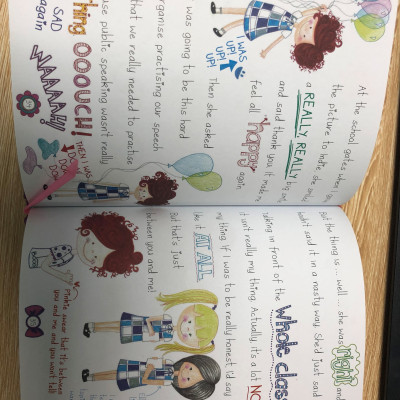 At the school gates when I
the picture to Katie she
a REALLY REALLY big
and said thank you. It made
feel all happy again
I WAS
UP!
UP!
UP!
Then she asked
was going to be this hard
organise practising our speech
that we really needed to practise
public speaking wasn't really
OOOUCH!
THEN I WAS
SAD
again
WAAAAH!
But the thing is ... well ... she was right and
hadn't said it in a nasty way. She'd just said
talking in front of the whole class
isn't really my thing. Actually, it's a lot NO
my thing. If I was to be really honest I'd say
like it AT ALL
But that's just
between you and me!
Pinkie swear that it's between
you and me and you won't tell